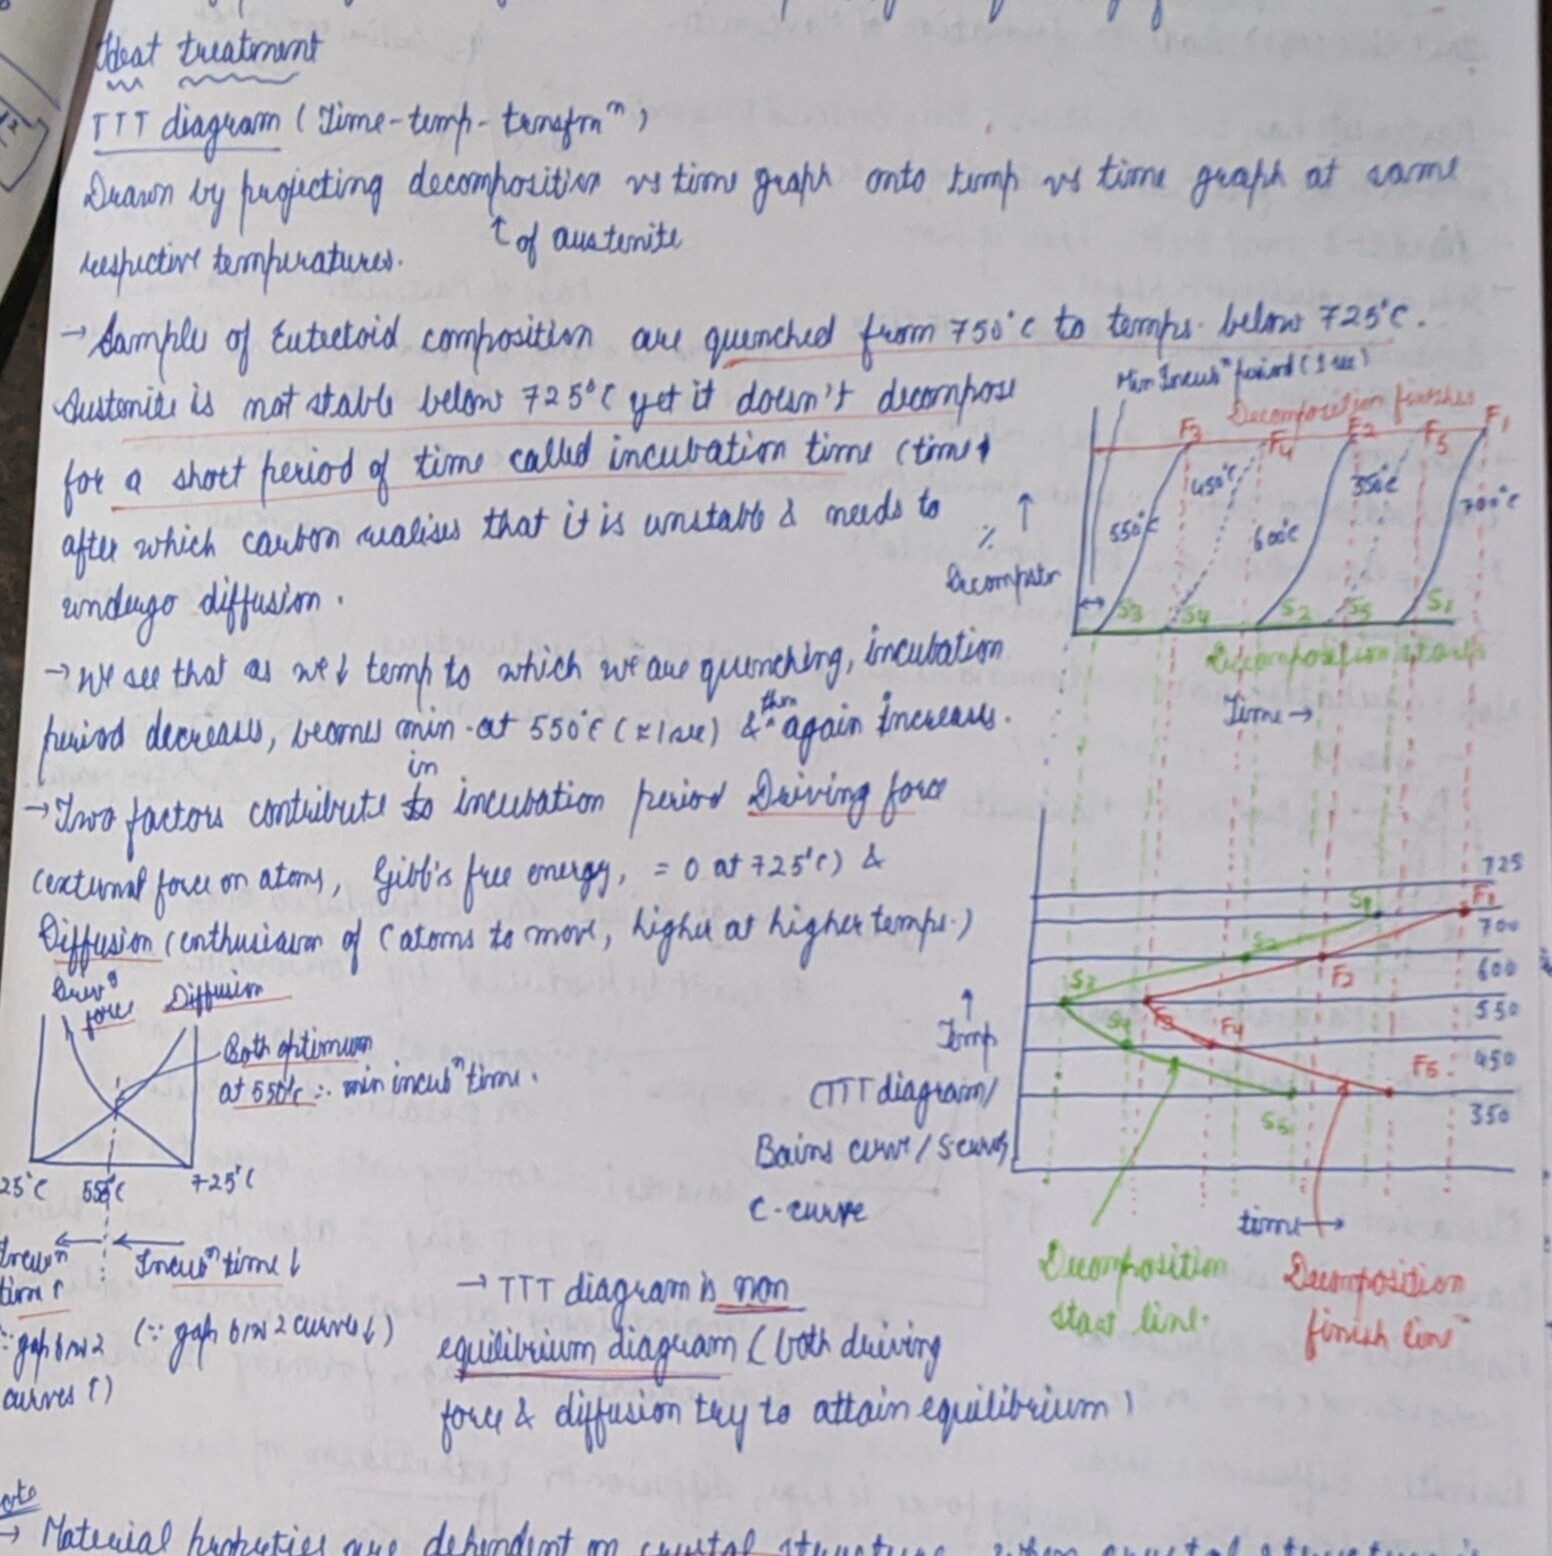 Heat treatment
TTT diagram (Time-temp-transfmⁿ)
Drawn by projecting decomposition vs time graph onto temp vs time graph at same
↑ of austenite
respective temperatures.
→ Sample of Eutectoid composition are quenched from 750°C to temps. below 725°C.
Austenite is not stable below 725°C yet it doesn't decompose
for a short period of time called incubation time (time
after which carbon realises that it is unstable & needs to
undergo diffusion.
→ We see that as we ↓ temp to which we are quenching, incubation
period decreases, becomes min. at 550°C (≈1sec) & then again increases.
→ Two factors contribute in incubation period Driving force
(external force on atoms, Gibb's free energy, = 0 at 725°C) &
Diffusion (enthusiasm of C atoms to move, higher at higher temps.)
Min Incubⁿ period (1 sec)
Decomposition finishes
F3 F4 F2 F5 F1
550°C 450°C 600°C 350°C 700°C
↑
%
Decompstn
S3 S4 S2 S5 S1
Decomposition starts
Time →
725
700
600
550
450
350
S1 F1
S2 F2
S3 F3
S4 F4
S5 F5
↑
Temp
(TTT diagram/
Bains curve/S curve/
C-curve
time →
Decomposition
start line.
Decomposition
finish line
Drivᵍ
force
Diffusion
Both optimum
at 550°C ∴ min incubⁿ time.
25°C 550°C 725°C
Incubⁿ
time ↑
∵ gap b/w 2
curves ↑)
Incubⁿ time ↓
(∵ gap b/w 2 curves ↓)
→ TTT diagram is non
equilibrium diagram (both driving
force & diffusion try to attain equilibrium)
→ Material properties are dependent on crystal structure